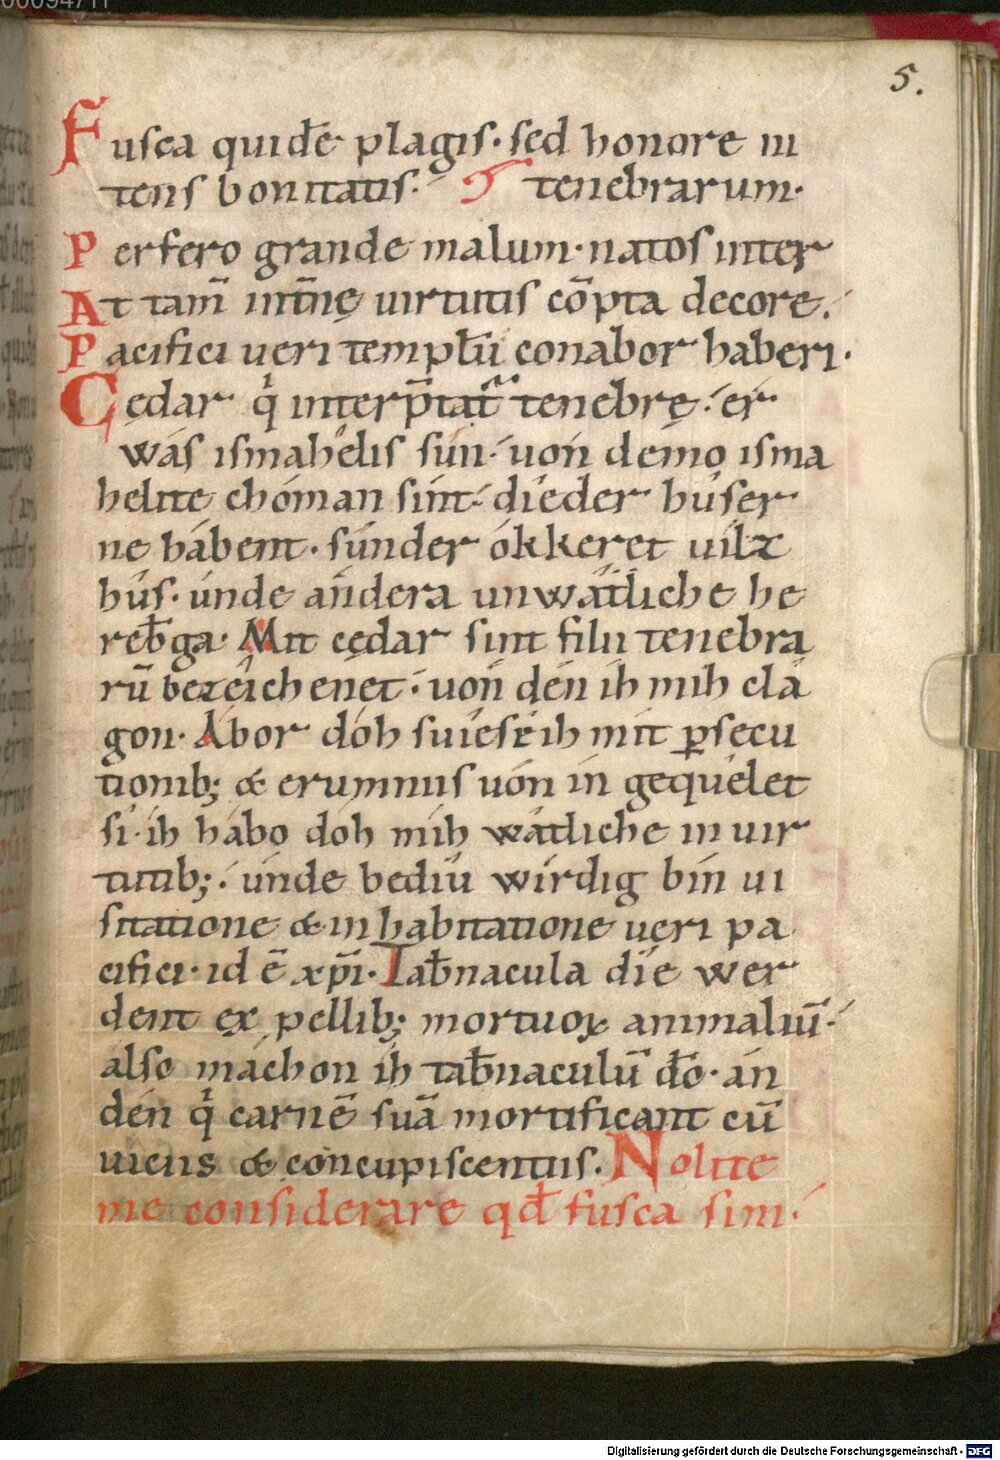 00094711
5.
Fusca quidē plagis· sed honore ni
tens bonitatis· tenebrarum·
Perfero grande malum· natos inter
At tam̄ int̄nę uirtutis cōpta decore.
Pacifici ueri templū conabor haberi·
Cedar q' interp̄tat᷑ tenebrę· er
wás ismahélis sún· uón démo isma
helite chóman sínt· díeder húser
ne hábent· súnder ókkeret uílz
hús· únde ándera unwátliche he
reb̄ga· Mit cędar sint filii tenebra
rū bezéichenet· uón dén ih mih clá
gon· Ábor dóh suíeséih mít ꝑsecu
tionib; & erumnis uón ín gequélet
sí· ih hábo doh mih wátliche in uir
tutib;· únde bediú wírdig bín ui
sitatione & inhabitatione ueri pa
cifici· id ē xp̄i· Tab̄nacula díe wer
dent ex pellib; mortuoꝝ animaliū·
álso máchon íh tab̄naculū d̄o· án
dén q' carnē suā mortificant cū
uiciis & concupiscentiis. Nolite
me considerare qd̄ fusca sim·
Digitalisierung gefördert durch die Deutsche Forschungsgemeinschaft - DFG